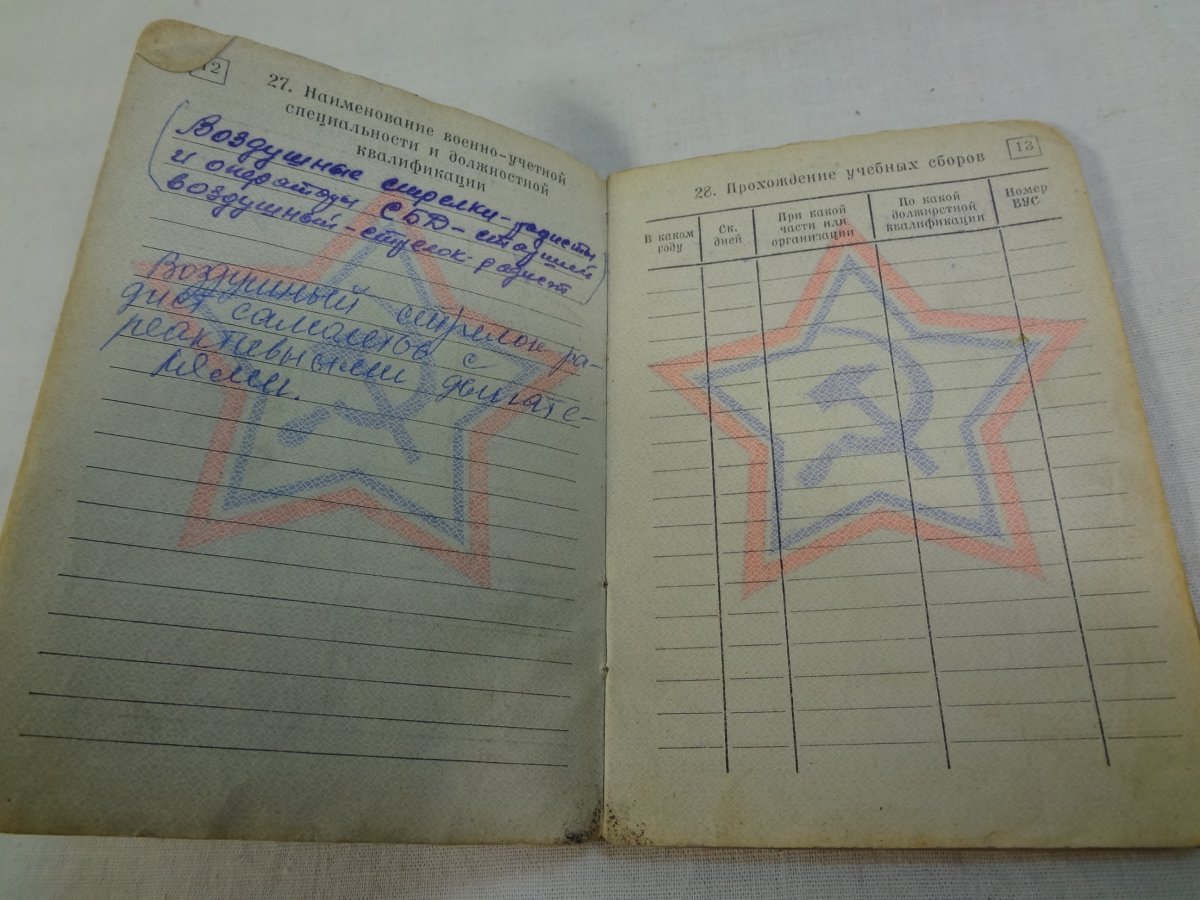 12
27. Наименование военно-учетной
специальности и должностной
квалификации
Воздушные стрелки-радисты
и операторы СБД - старший
воздушный - стрелок-радист
Воздушный стрелок ра-
дист самолетов с
реактивными двигате-
лями.
13
28. Прохождение учебных сборов
В каком
году
Ск.
дней
При какой
части или
организации
По какой
должностной
квалификации
Номер
ВУС